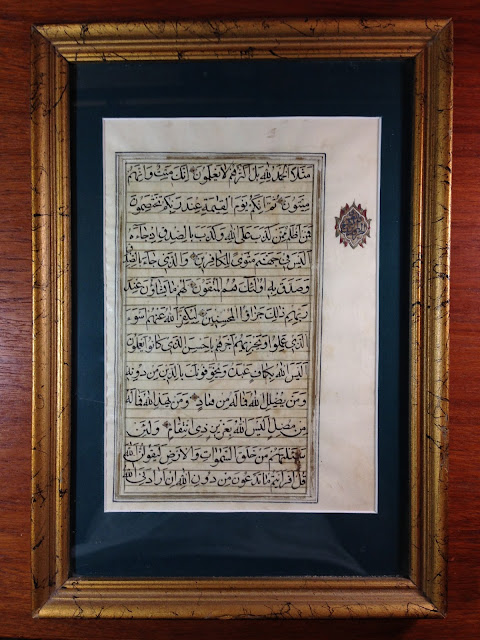 مَثَلًا اَلْحَمْدُ لِلّٰهِ بَلْ اَكْثَرُهُمْ لَا يَعْلَمُونَ اِنَّكَ مَيِّتٌ وَاِنَّهُمْ
مَيِّتُونَ ثُمَّ اِنَّكُمْ يَوْمَ الْقِيٰمَةِ عِنْدَ رَبِّكُمْ تَخْتَصِمُونَ
فَمَنْ اَظْلَمُ مِمَّنْ كَذَبَ عَلَى اللّٰهِ وَكَذَّبَ بِالصِّدْقِ اِذْ جَاءَهُ
اَلَيْسَ فِي جَهَنَّمَ مَثْوًى لِلْكَافِرِينَ وَالَّذِي جَاءَ بِالصِّدْقِ
وَصَدَّقَ بِهِ اُولٰئِكَ هُمُ الْمُتَّقُونَ لَهُمْ مَا يَشَاؤُنَ عِنْدَ
رَبِّهِمْ ذٰلِكَ جَزَاؤُ الْمُحْسِنِينَ لِيُكَفِّرَ اللّٰهُ عَنْهُمْ اَسْوَءَ
الَّذِي عَمِلُوا وَيَجْزِيَهُمْ اَجْرَهُمْ بِاَحْسَنِ الَّذِي كَانُوا يَعْمَلُونَ
اَلَيْسَ اللّٰهُ بِكَافٍ عَبْدَهُ وَيُخَوِّفُونَكَ بِالَّذِينَ مِنْ دُونِهِ
وَمَنْ يُضْلِلِ اللّٰهُ فَمَا لَهُ مِنْ هَادٍ وَمَنْ يَهْدِ اللّٰهُ فَمَا لَهُ
مِنْ مُضِلٍّ اَلَيْسَ اللّٰهُ بِعَزِيزٍ ذِي انْتِقَامٍ وَلَئِنْ
سَئَلْتَهُمْ مَنْ خَلَقَ السَّمٰوَاتِ وَالْاَرْضَ لَيَقُولُنَّ اللّٰهُ
قُلْ اَفَرَاَيْتُمْ مَا تَدْعُونَ مِنْ دُونِ اللّٰهِ اِنْ اَرَادَنِيَ اللّٰهُ